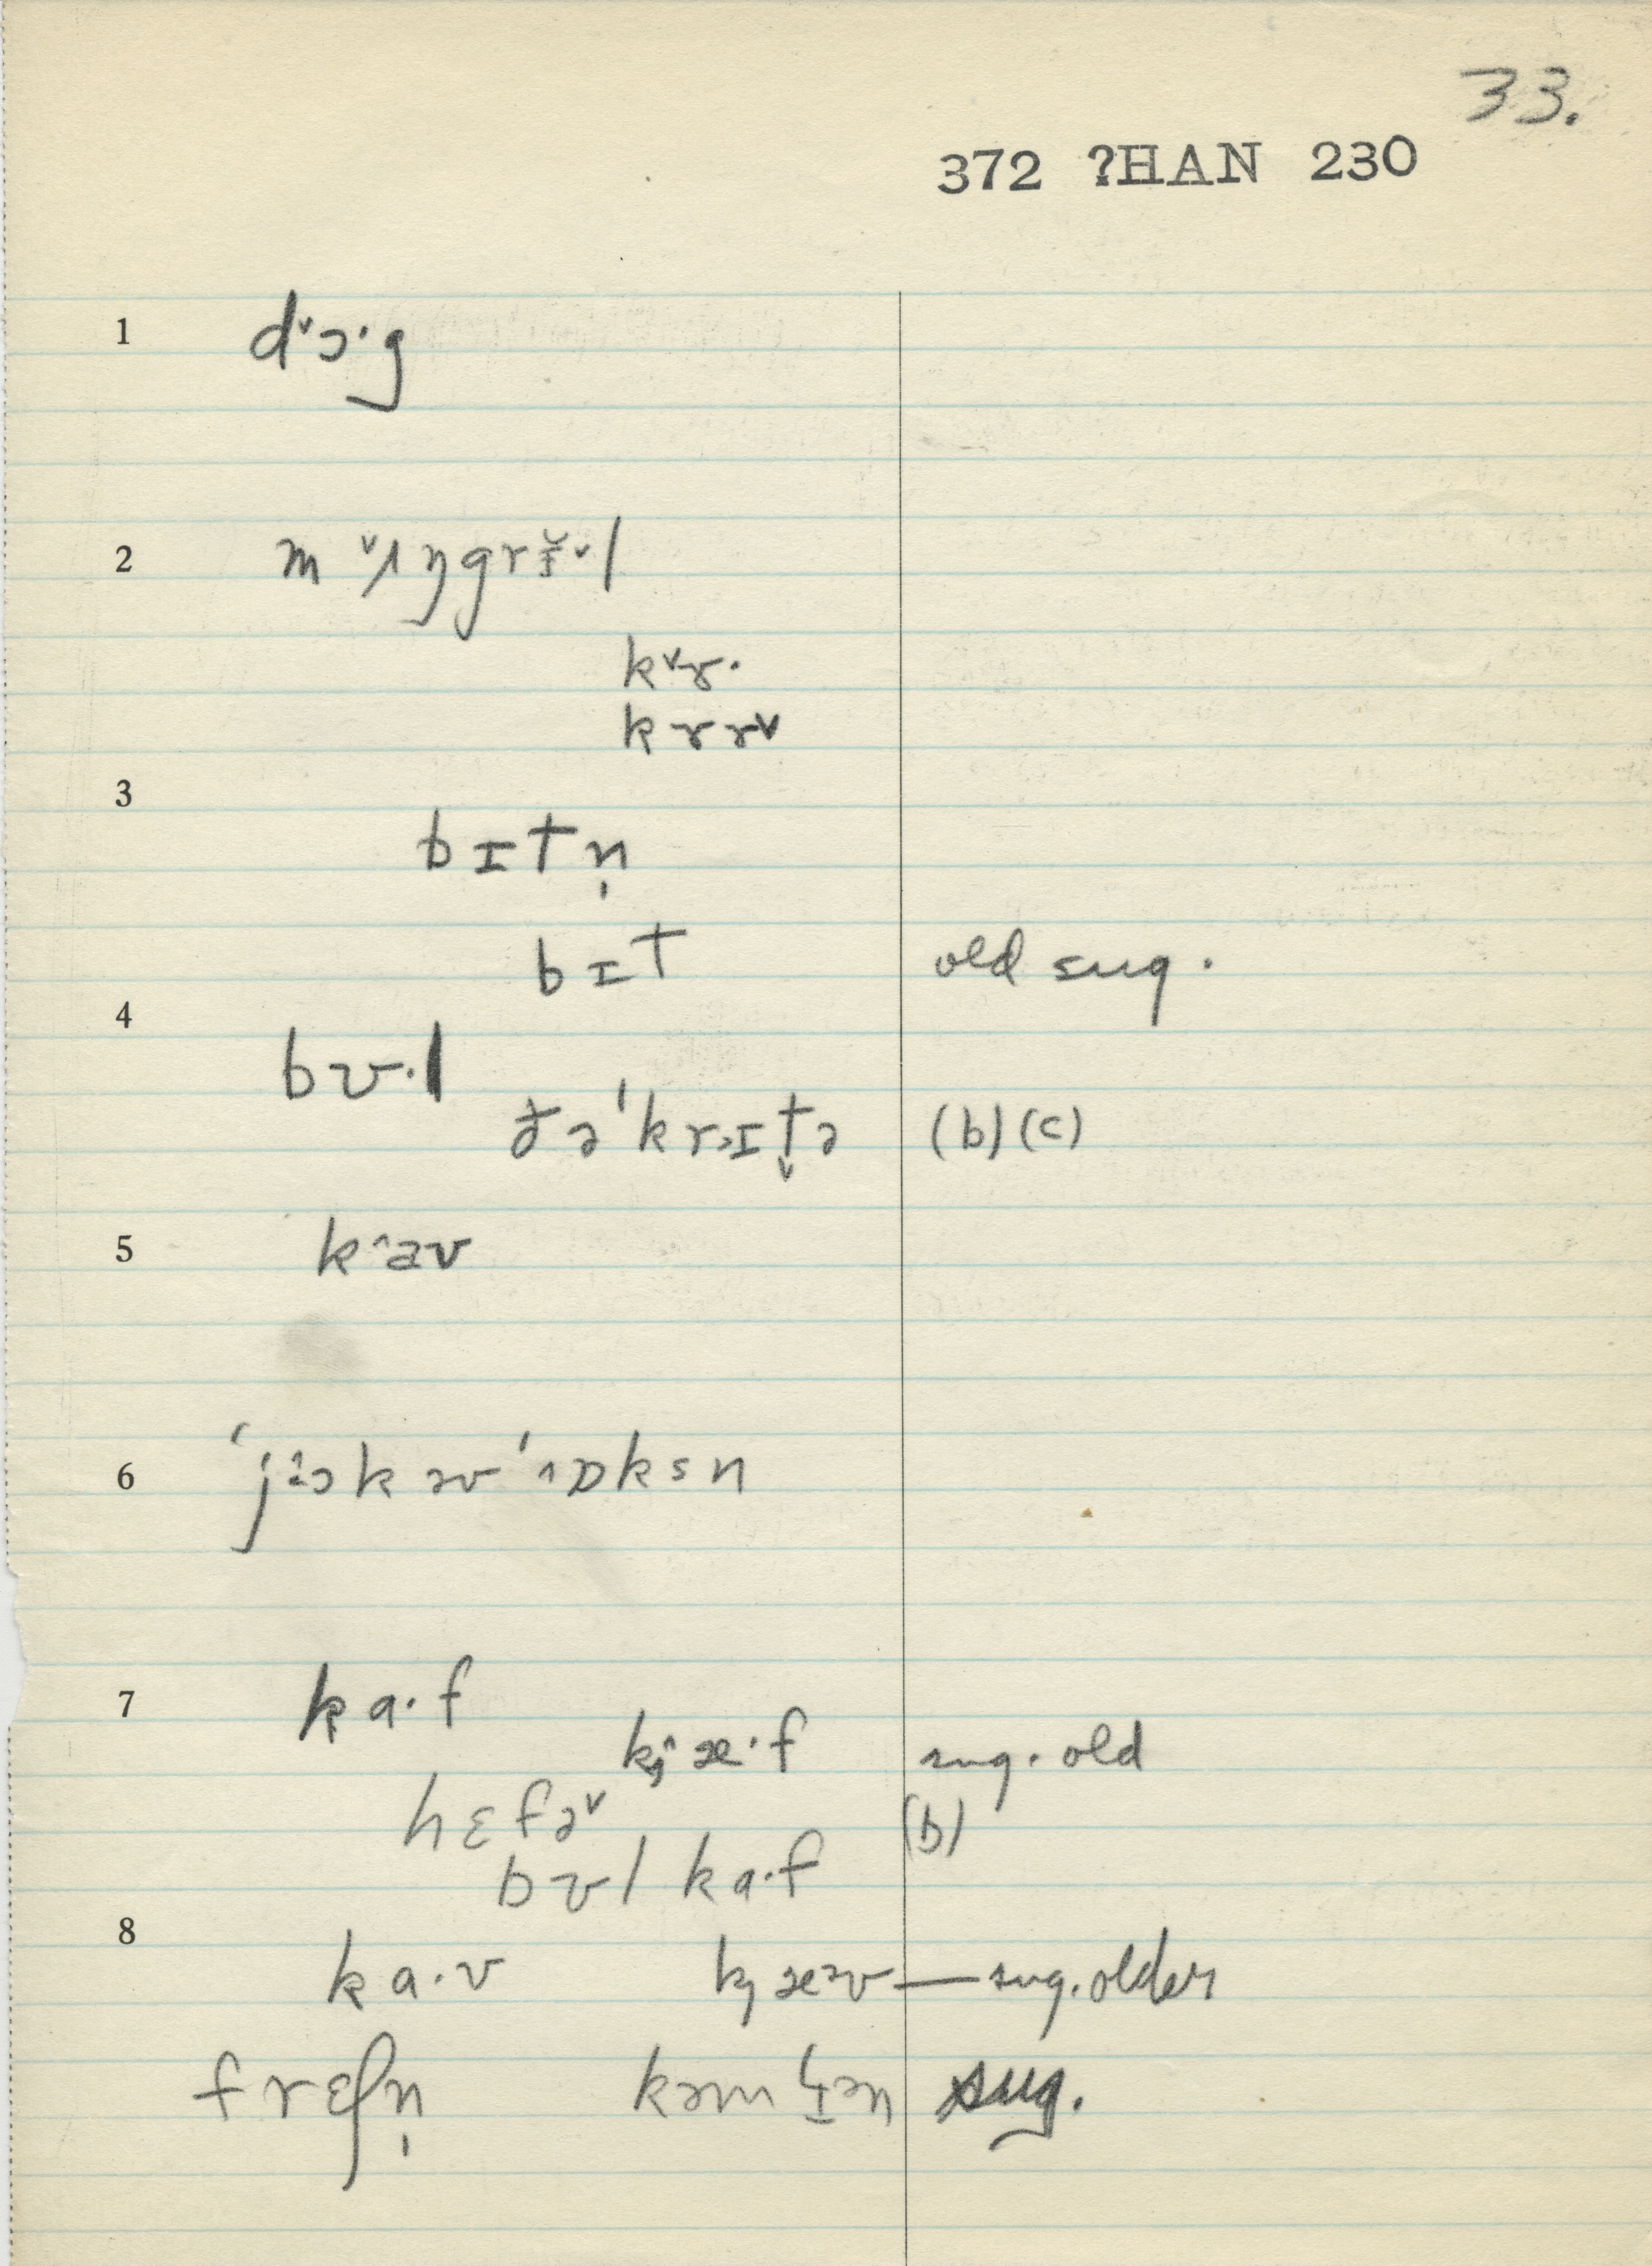 33.
372 ?HAN 230
1 d˅ɔ·g
2 m ˅ʌŋgrɪ̆˅l
k˅ɤ·
krr˅
3
bɪtn̩
bɪt old sug.
4
bʊ·l
ðə'krɪt̬ə (b)(c)
5 k^aʊ
6 'jɔkəʊ'ɒksn
7 ka·f
k^æ·f sug. old
hɛfə˅ (b)
bʊl ka·f
8
ka·v kæv — sug. older
frɛʃn̩ kəm ɪən sug.